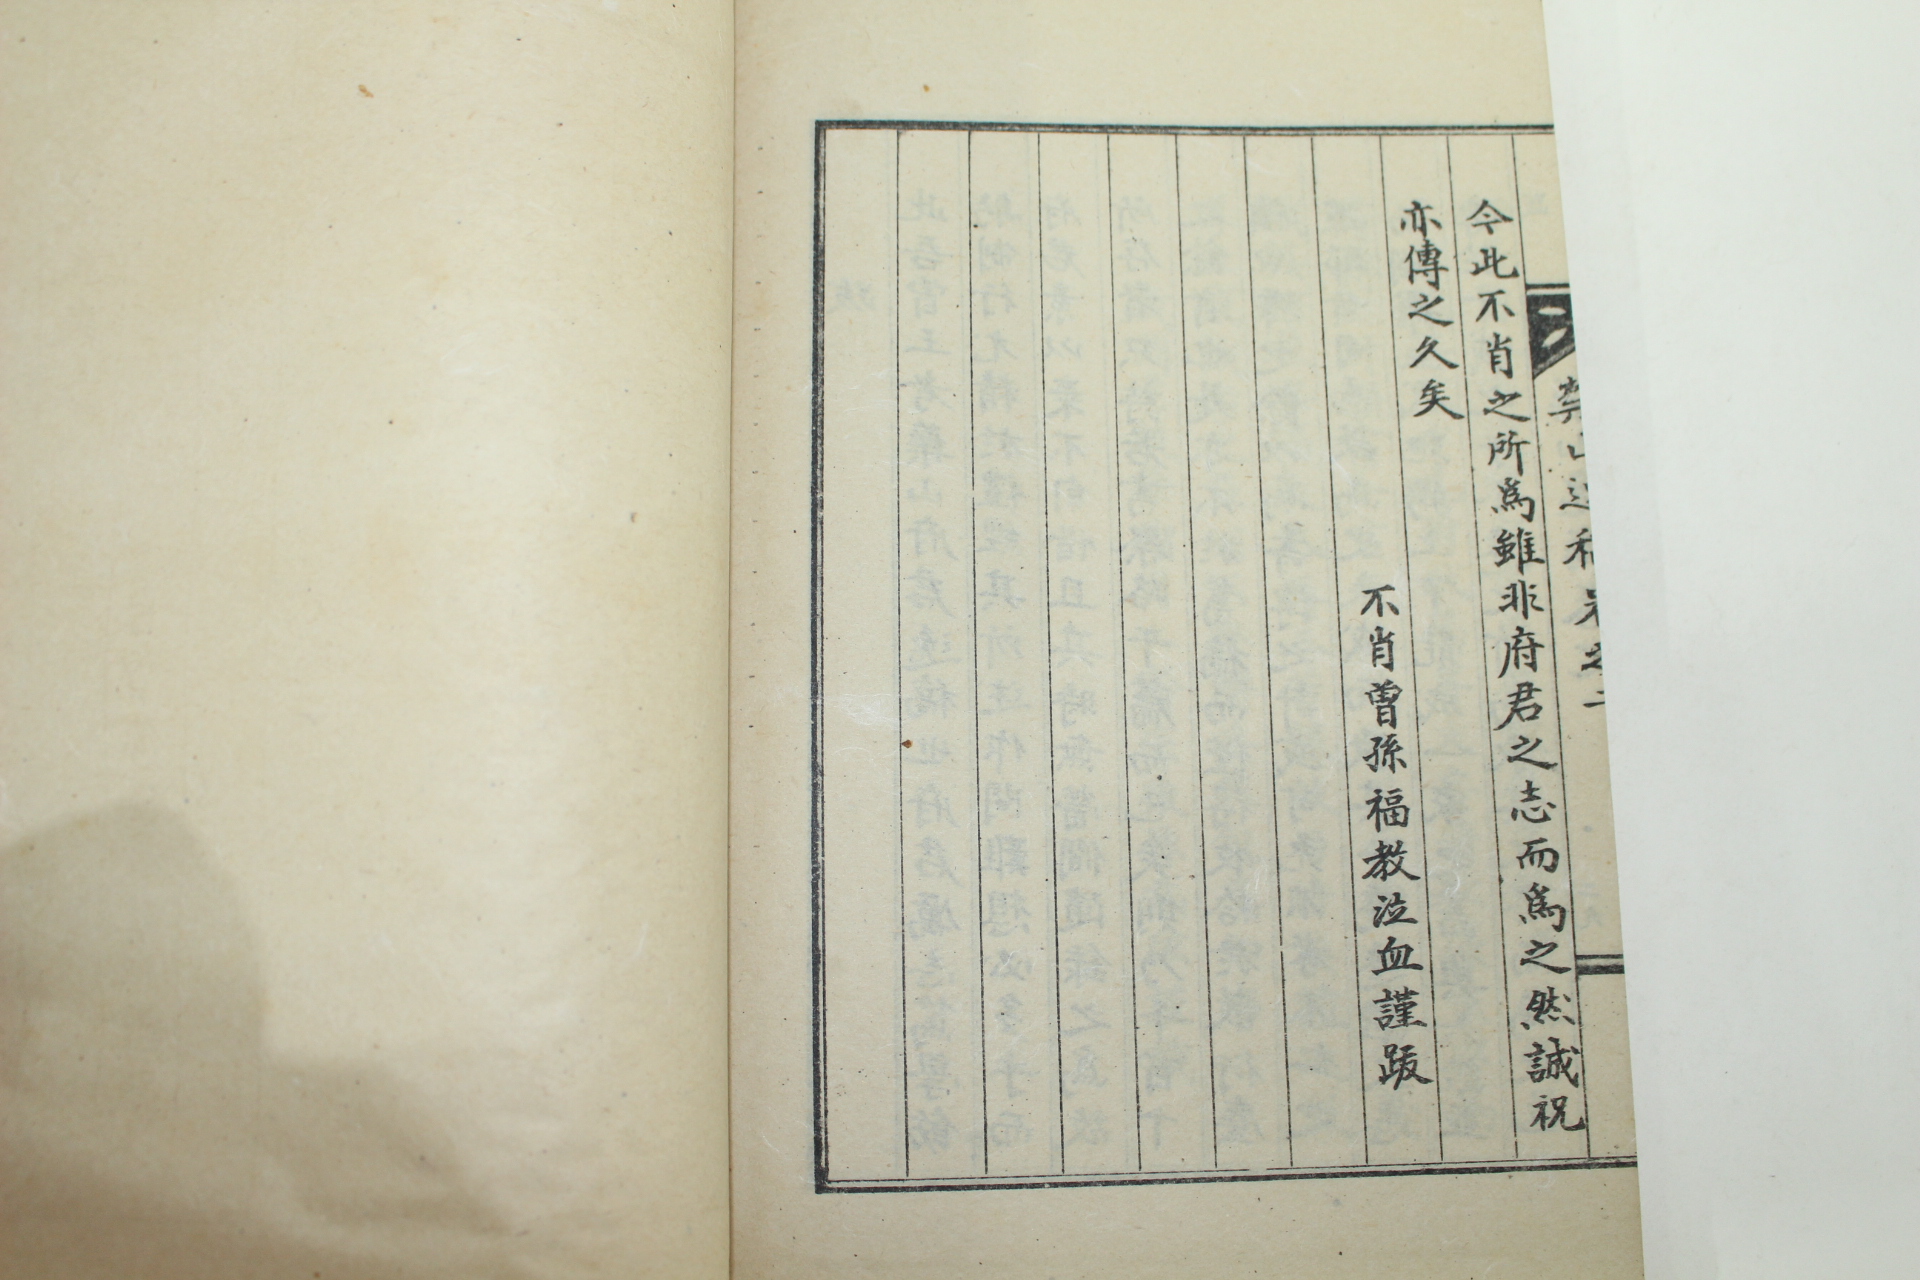 山逸稿卷之二
今此不肖之所爲雖非府君之志而爲之然誠祝
亦傳之久矣
不肖曾孫福教泣血謹跋